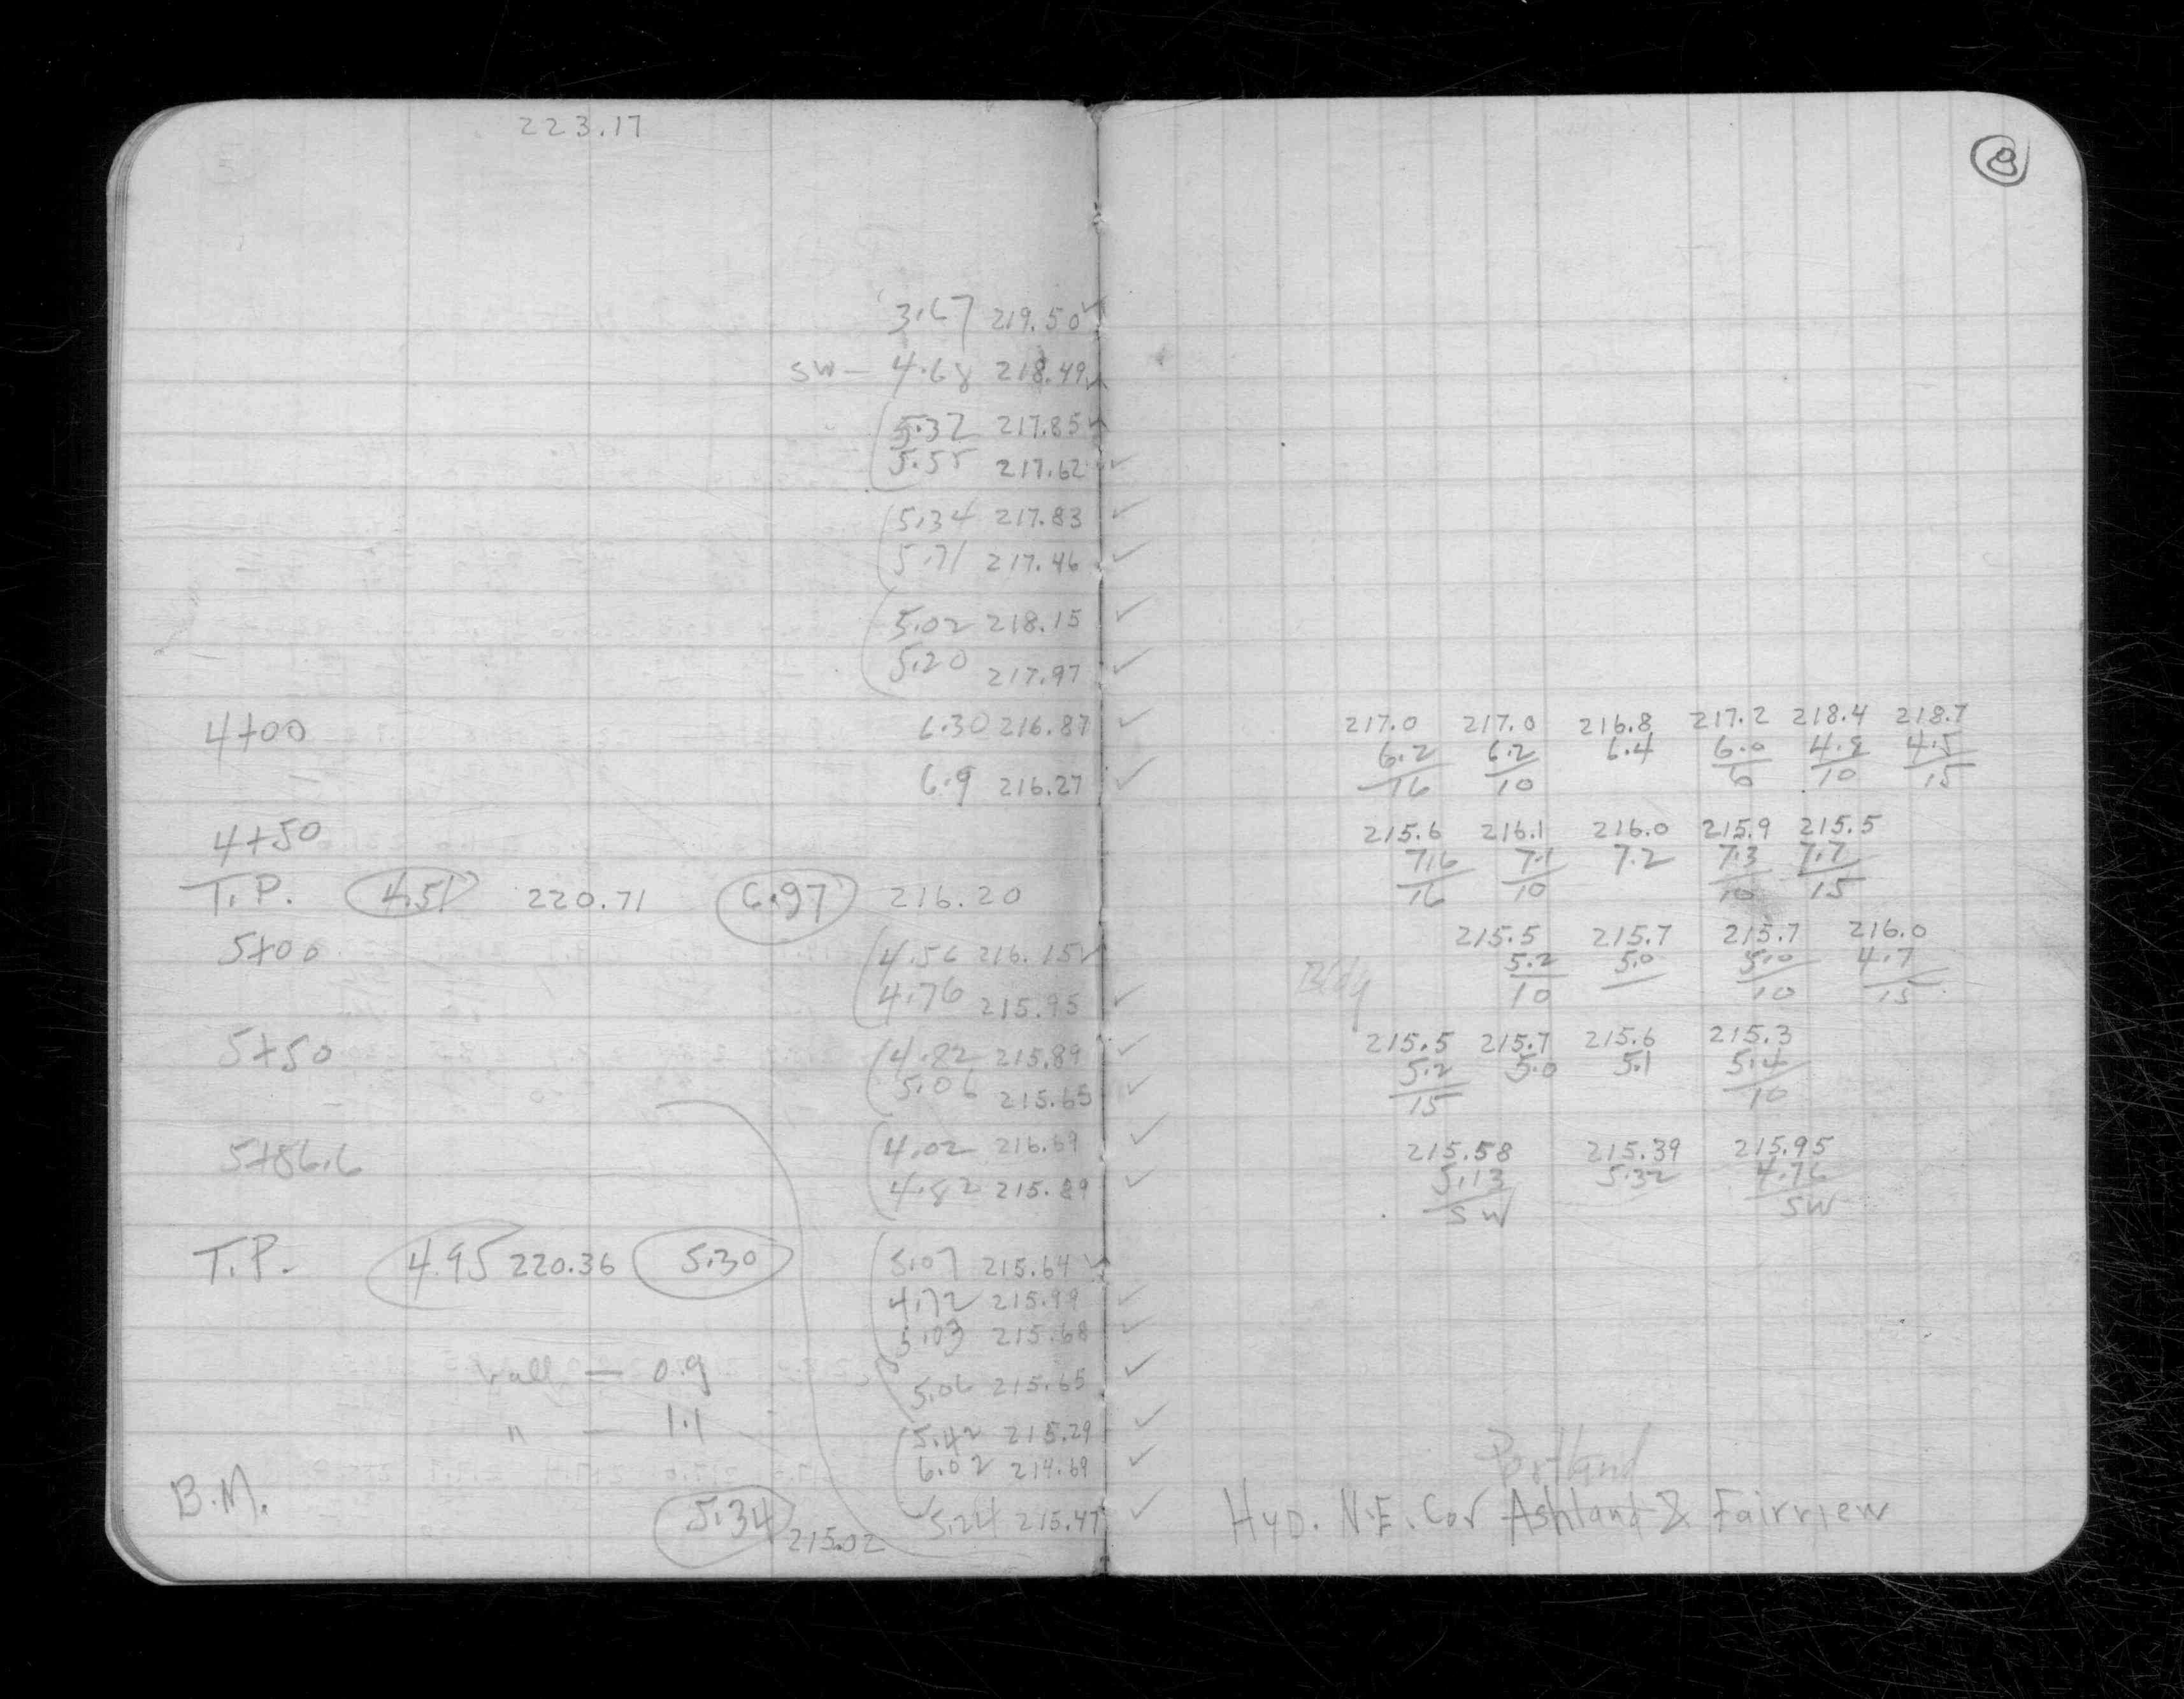 223.17
8
3.67 219.50 ✓
SW — 4.68 218.49 ✓
5.32 217.85 ✓
5.55 217.62 ✓
5.34 217.83 ✓
5.71 217.46 ✓
5.02 218.15 ✓
5.20 217.97 ✓
4+00 6.30 216.87 ✓ 217.0 217.0 216.8 217.2 218.4 218.7
6.2 6.2 6.4 6.0 4.8 4.5
6.9 216.27 ✓ 16 10 6 10 15
4+50 215.6 216.1 216.0 215.9 215.5
7.6 7.1 7.2 7.3 7.7
T.P. 4.51 220.71 6.97 216.20 16 10 10 15
5+00 4.56 216.15 ✓ 215.5 215.7 215.7 216.0
Bldg 5.2 5.0 5.0 4.7
4.76 215.95 ✓ 10 10 15
5+50 4.82 215.89 ✓ 215.5 215.7 215.6 215.3
5.06 215.65 ✓ 5.2 5.0 5.1 5.4
15 10
5+86.6 4.02 216.69 ✓ 215.58 215.39 215.95
4.82 215.89 ✓ 5.13 5.32 4.76
SW SW
T.P. 4.95 220.36 5.30 5.07 215.64 ✓
4.72 215.99 ✓
5.03 215.68 ✓
wall — 0.9 5.06 215.65 ✓
" — 1.1 5.42 215.29 ✓
6.02 214.69 ✓
Portland
B.M. 5.34 215.02 5.24 215.47 ✓ Hyd. N.E. Cor Ashland & Fairview